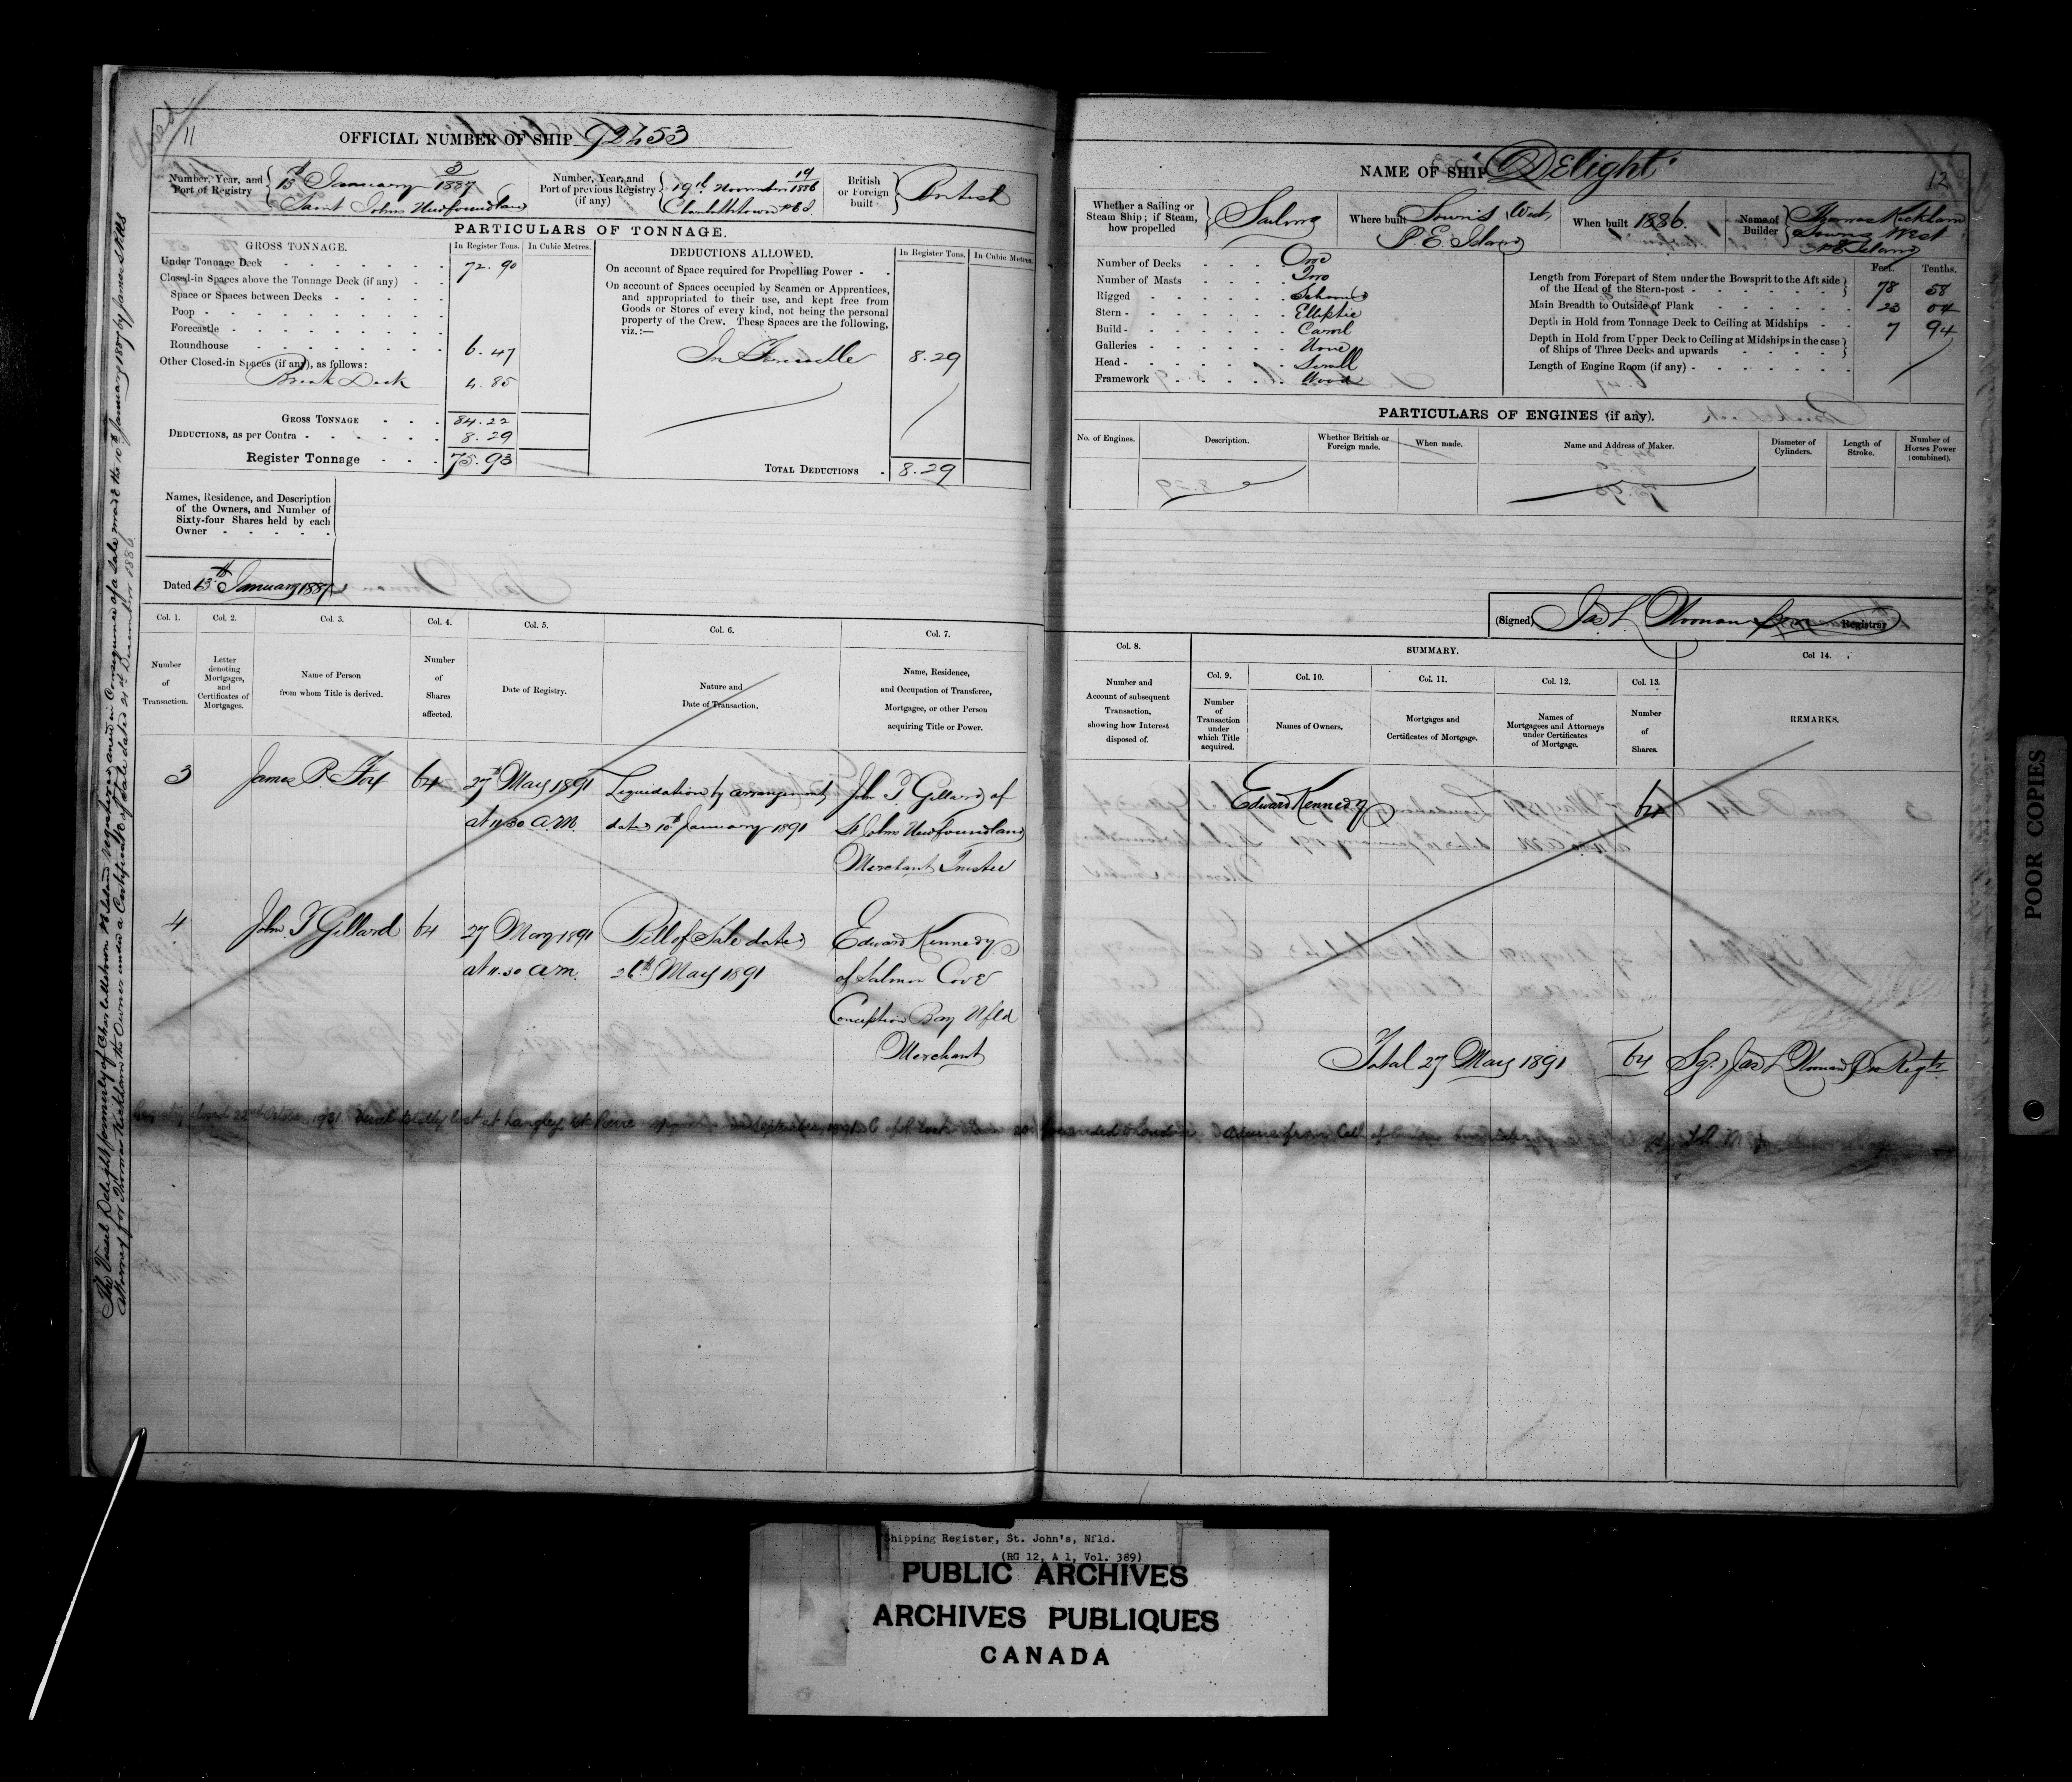 Closed
11
OFFICIAL NUMBER OF SHIP 92453
Number, Year, and Port of Registry { 13th January 3/1887
Saint Johns Newfoundland
Number, Year, and Port of previous Registry (if any) { 19th November 14/1886
Charlottetown P E I.
British or Foreign built } British
PARTICULARS OF TONNAGE.
GROSS TONNAGE. In Register Tons. In Cubic Metres.
Under Tonnage Deck 72.90
Closed-in Spaces above the Tonnage Deck (if any)
Space or Spaces between Decks
Poop
Forecastle
Roundhouse 6.47
Other Closed-in Spaces (if any), as follows:
Break Deck 4.85
GROSS TONNAGE 84.22
DEDUCTIONS, as per Contra 8.29
Register Tonnage 75.93
DEDUCTIONS ALLOWED. In Register Tons. In Cubic Metres.
On account of Space required for Propelling Power
On account of Spaces occupied by Seamen or Apprentices,
and appropriated to their use, and kept free from
Goods or Stores of every kind, not being the personal
property of the Crew. These Spaces are the following,
viz.:—
In Forecastle 8.29
TOTAL DEDUCTIONS 8.29
Names, Residence, and Description
of the Owners, and Number of
Sixty-four Shares held by each
Owner
Dated 13th January 1887
Col. 1. Col. 2. Col. 3. Col. 4. Col. 5. Col. 6. Col. 7.
Number of Transaction.
Letter denoting Mortgages, and Certificates of Mortgages.
Name of Person from whom Title is derived.
Number of Shares affected.
Date of Registry.
Nature and Date of Transaction.
Name, Residence, and Occupation of Transferee, Mortgagee, or other Person acquiring Title or Power.
3 James P. Fox 64 27th May 1891 Liquidation by arrangement John T Gillard of
at 11.30 A.M. dated 10th January 1891 St Johns Newfoundland
Merchant Trustee
4 John T Gillard 64 27 May 1891 Bill of Sale dated Edward Kennedy
at 11.30 a.m. 26th May 1891 of Salmon Cove
Conception Bay Nfld
Merchant
Registry closed 22nd October 1931. Vessel totally lost at Langley, St Pierre September, 1891. C of R Lost
The Vessel Delight formerly of Charlottetown P E Island registered anew in Consequence of a Sale made the 10th January 1887 by James
Attorney for Thomas Kickham the Owner under a Certificate of Sale dated 21st December 1886.
NAME OF SHIP "Delight"
12
Whether a Sailing or Steam Ship; if Steam, how propelled } Sailing
Where built Souris West,
P. E. Island
When built 1886.
Name of Builder } Thomas Kickham
Souris West
P E Island
Number of Decks One
Number of Masts Two
Rigged Schooner
Stern Elliptic
Build Carvel
Galleries None
Head Scroll
Framework Wood
Feet. Tenths.
Length from Forepart of Stem under the Bowsprit to the Aft side
of the Head of the Stern-post 78 58
Main Breadth to Outside of Plank 23 04
Depth in Hold from Tonnage Deck to Ceiling at Midships 7 94
Depth in Hold from Upper Deck to Ceiling at Midships in the case
of Ships of Three Decks and upwards
Length of Engine Room (if any)
PARTICULARS OF ENGINES (if any).
No. of Engines. Description. Whether British or Foreign made. When made. Name and Address of Maker. Diameter of Cylinders. Length of Stroke. Number of Horses Power (combined).
(Signed) Jas L Noonan Registrar
Col. 8. SUMMARY. Col 14.
Col. 9. Col. 10. Col. 11. Col. 12. Col. 13.
Number and Account of subsequent Transaction, showing how Interest disposed of.
Number of Transaction under which Title acquired.
Names of Owners.
Mortgages and Certificates of Mortgage.
Names of Mortgagees and Attorneys under Certificates of Mortgage.
Number of Shares.
REMARKS.
Edward Kennedy 64
Total 27 May 1891 64 Sgd Jas L Noonan Pro Regtr
POOR COPIES
Shipping Register, St. John's, Nfld.
(RG 12, A 1, Vol. 389)
PUBLIC ARCHIVES
ARCHIVES PUBLIQUES
CANADA